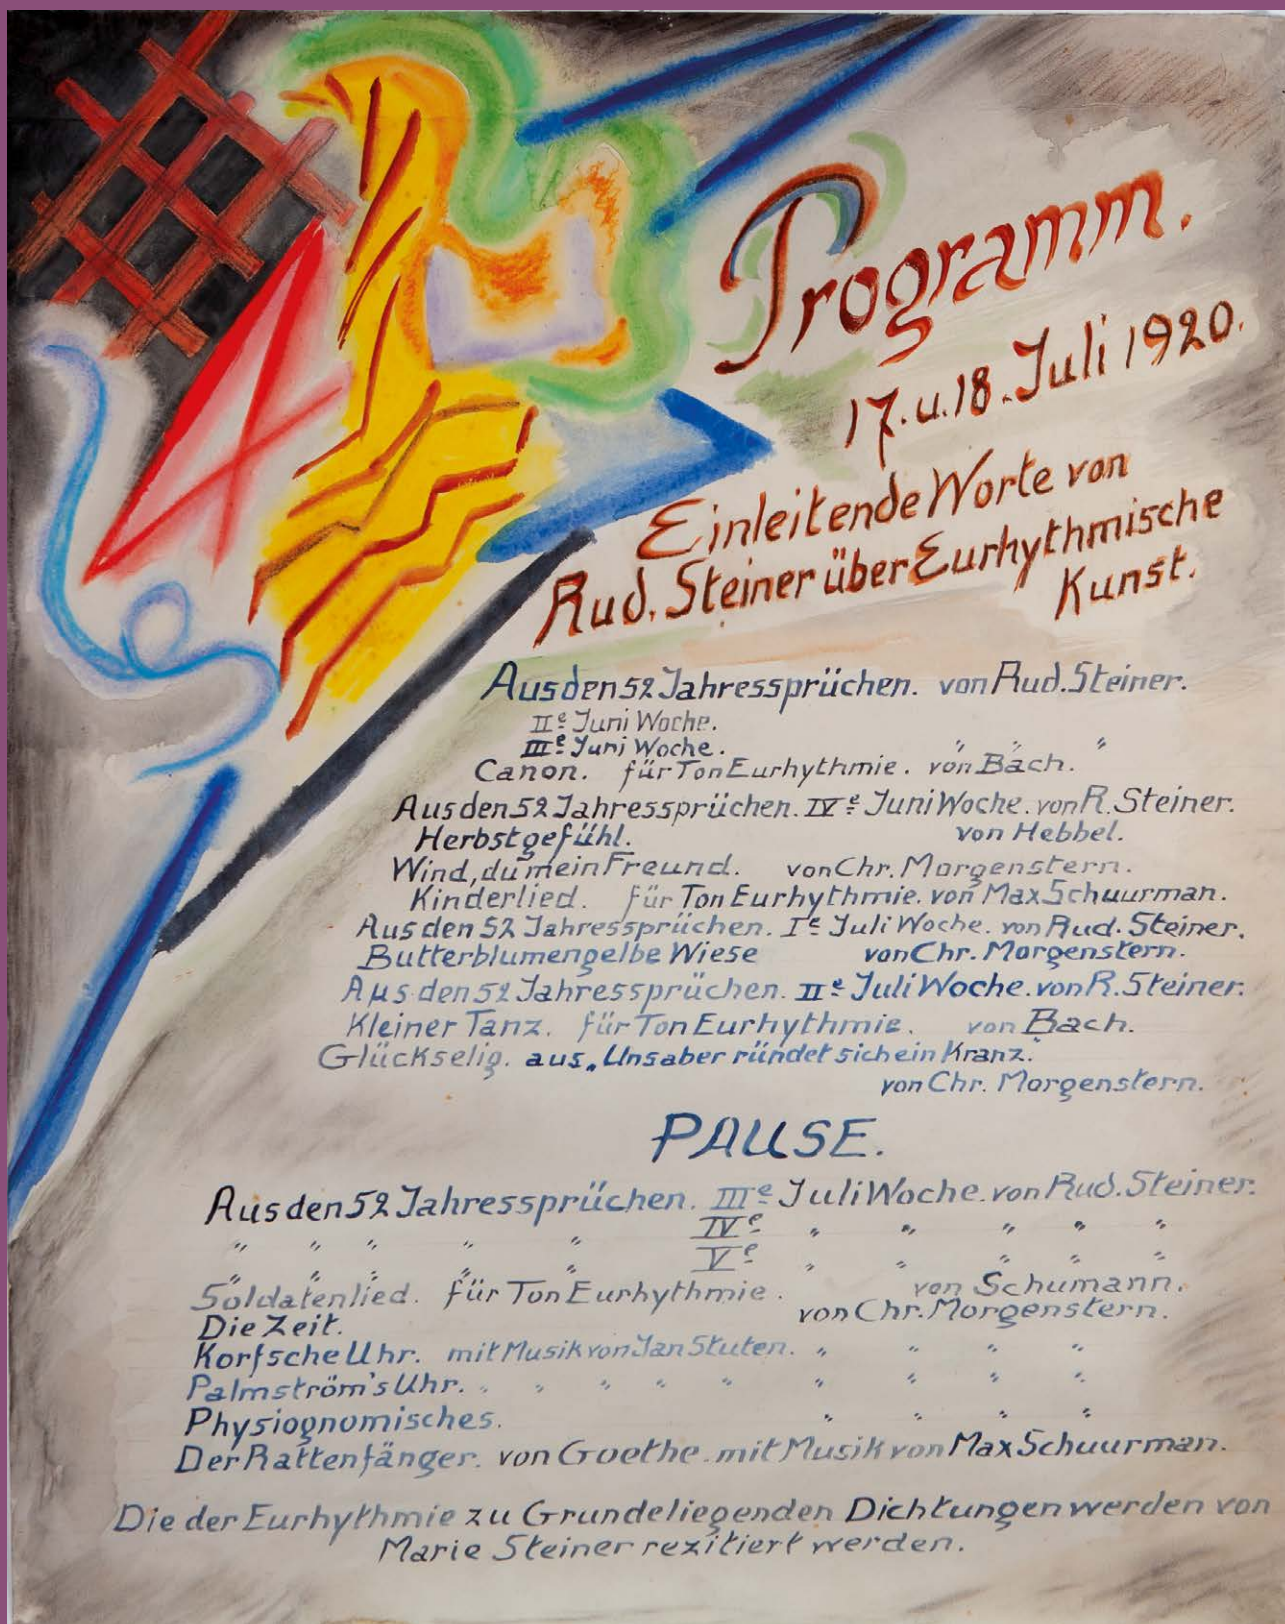 Programm.
17. u. 18. Juli 1920.
Einleitende Worte von
Rud. Steiner über Eurhythmische
Kunst.
Aus den 52 Jahressprüchen. von Rud. Steiner.
IIe Juni Woche.
IIIe Juni Woche. " " "
Canon. für Ton Eurhythmie. von Bach.
Aus den 52 Jahressprüchen. IVe Juni Woche. von R. Steiner.
Herbstgefühl. von Hebbel.
Wind, du mein Freund. von Chr. Morgenstern.
Kinderlied. für Ton Eurhythmie. von Max Schuurman.
Aus den 52 Jahressprüchen. Ie Juli Woche. von Rud. Steiner.
Butterblumengelbe Wiese von Chr. Morgenstern.
Aus den 52 Jahressprüchen. IIe Juli Woche. von R. Steiner.
Kleiner Tanz. für Ton Eurhythmie. von Bach.
Glückselig. aus „Uns aber ründet sich ein Kranz."
von Chr. Morgenstern.
PAUSE.
Aus den 52 Jahressprüchen. IIIe Juli Woche. von Rud. Steiner.
" " " " " IVe " " " " "
" " " " " Ve " " " " "
Soldatenlied. für Ton Eurhythmie. von Schumann.
Die Zeit. von Chr. Morgenstern.
Korfsche Uhr. mit Musik von Jan Stuten. " " " "
Palmström's Uhr. " " " " " " " " "
Physiognomisches. " " " "
Der Rattenfänger. von Goethe. mit Musik von Max Schuurman.
Die der Eurhythmie zu Grundeliegenden Dichtungen werden von
Marie Steiner rezitiert werden.